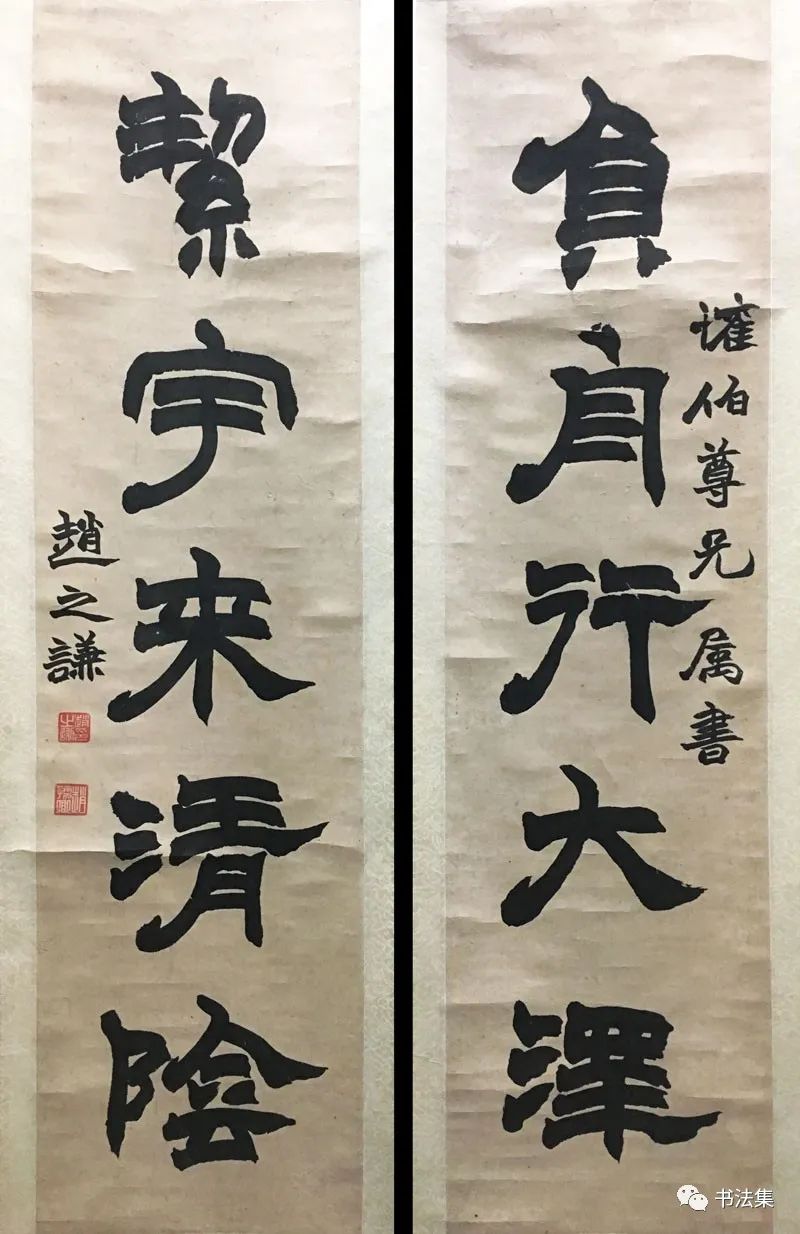 負舟行大澤
伯尊兄属書
絜宇来清陰
趙之謙
书法集